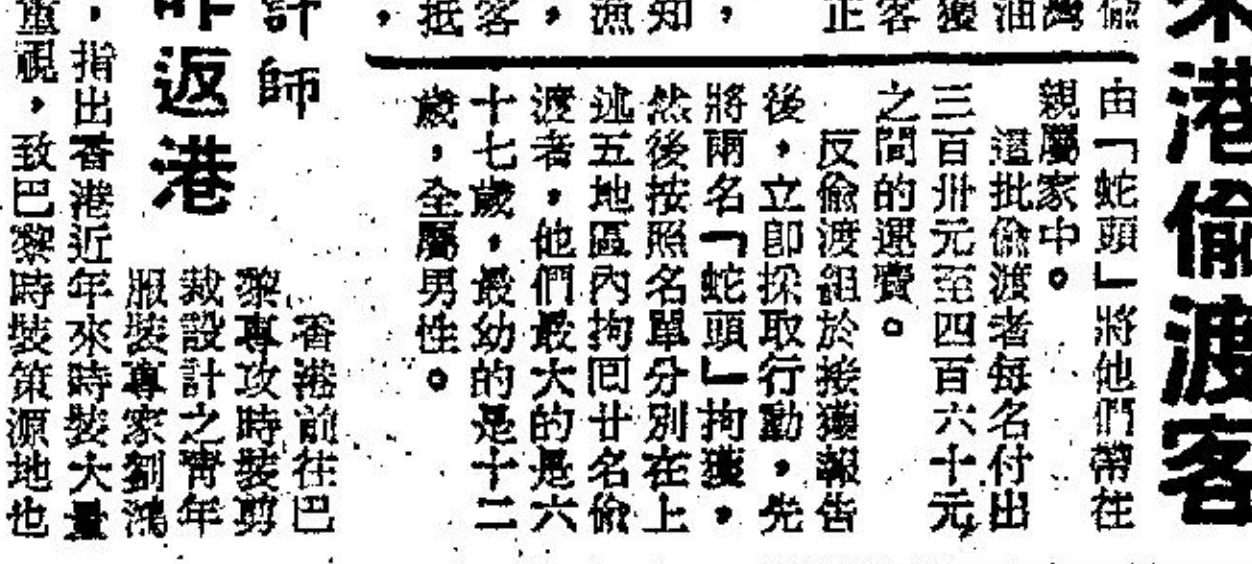 來港偷渡客
偷
灣
油
獲
客
正
，
知
漁
，
客
抵
，
由「蛇頭」將他們帶往
親屬家中。
這批偷渡者每名付出
三百卅元至四百六十元
之間的運費。
反偷渡組於接獲報告
後，立即採取行動，先
將兩名「蛇頭」拘獲，
然後按照名單分別在上
述五地區內拘回廿名偷
渡者，他們最大的是六
十七歲，最幼的是十二
歲，全屬男性。
計師
昨返港
香港前往巴
黎專攻時裝剪
裁設計之青年
服裝專家劉鴻
，指出香港近年來時裝大量
重視，致巴黎時裝策源地也